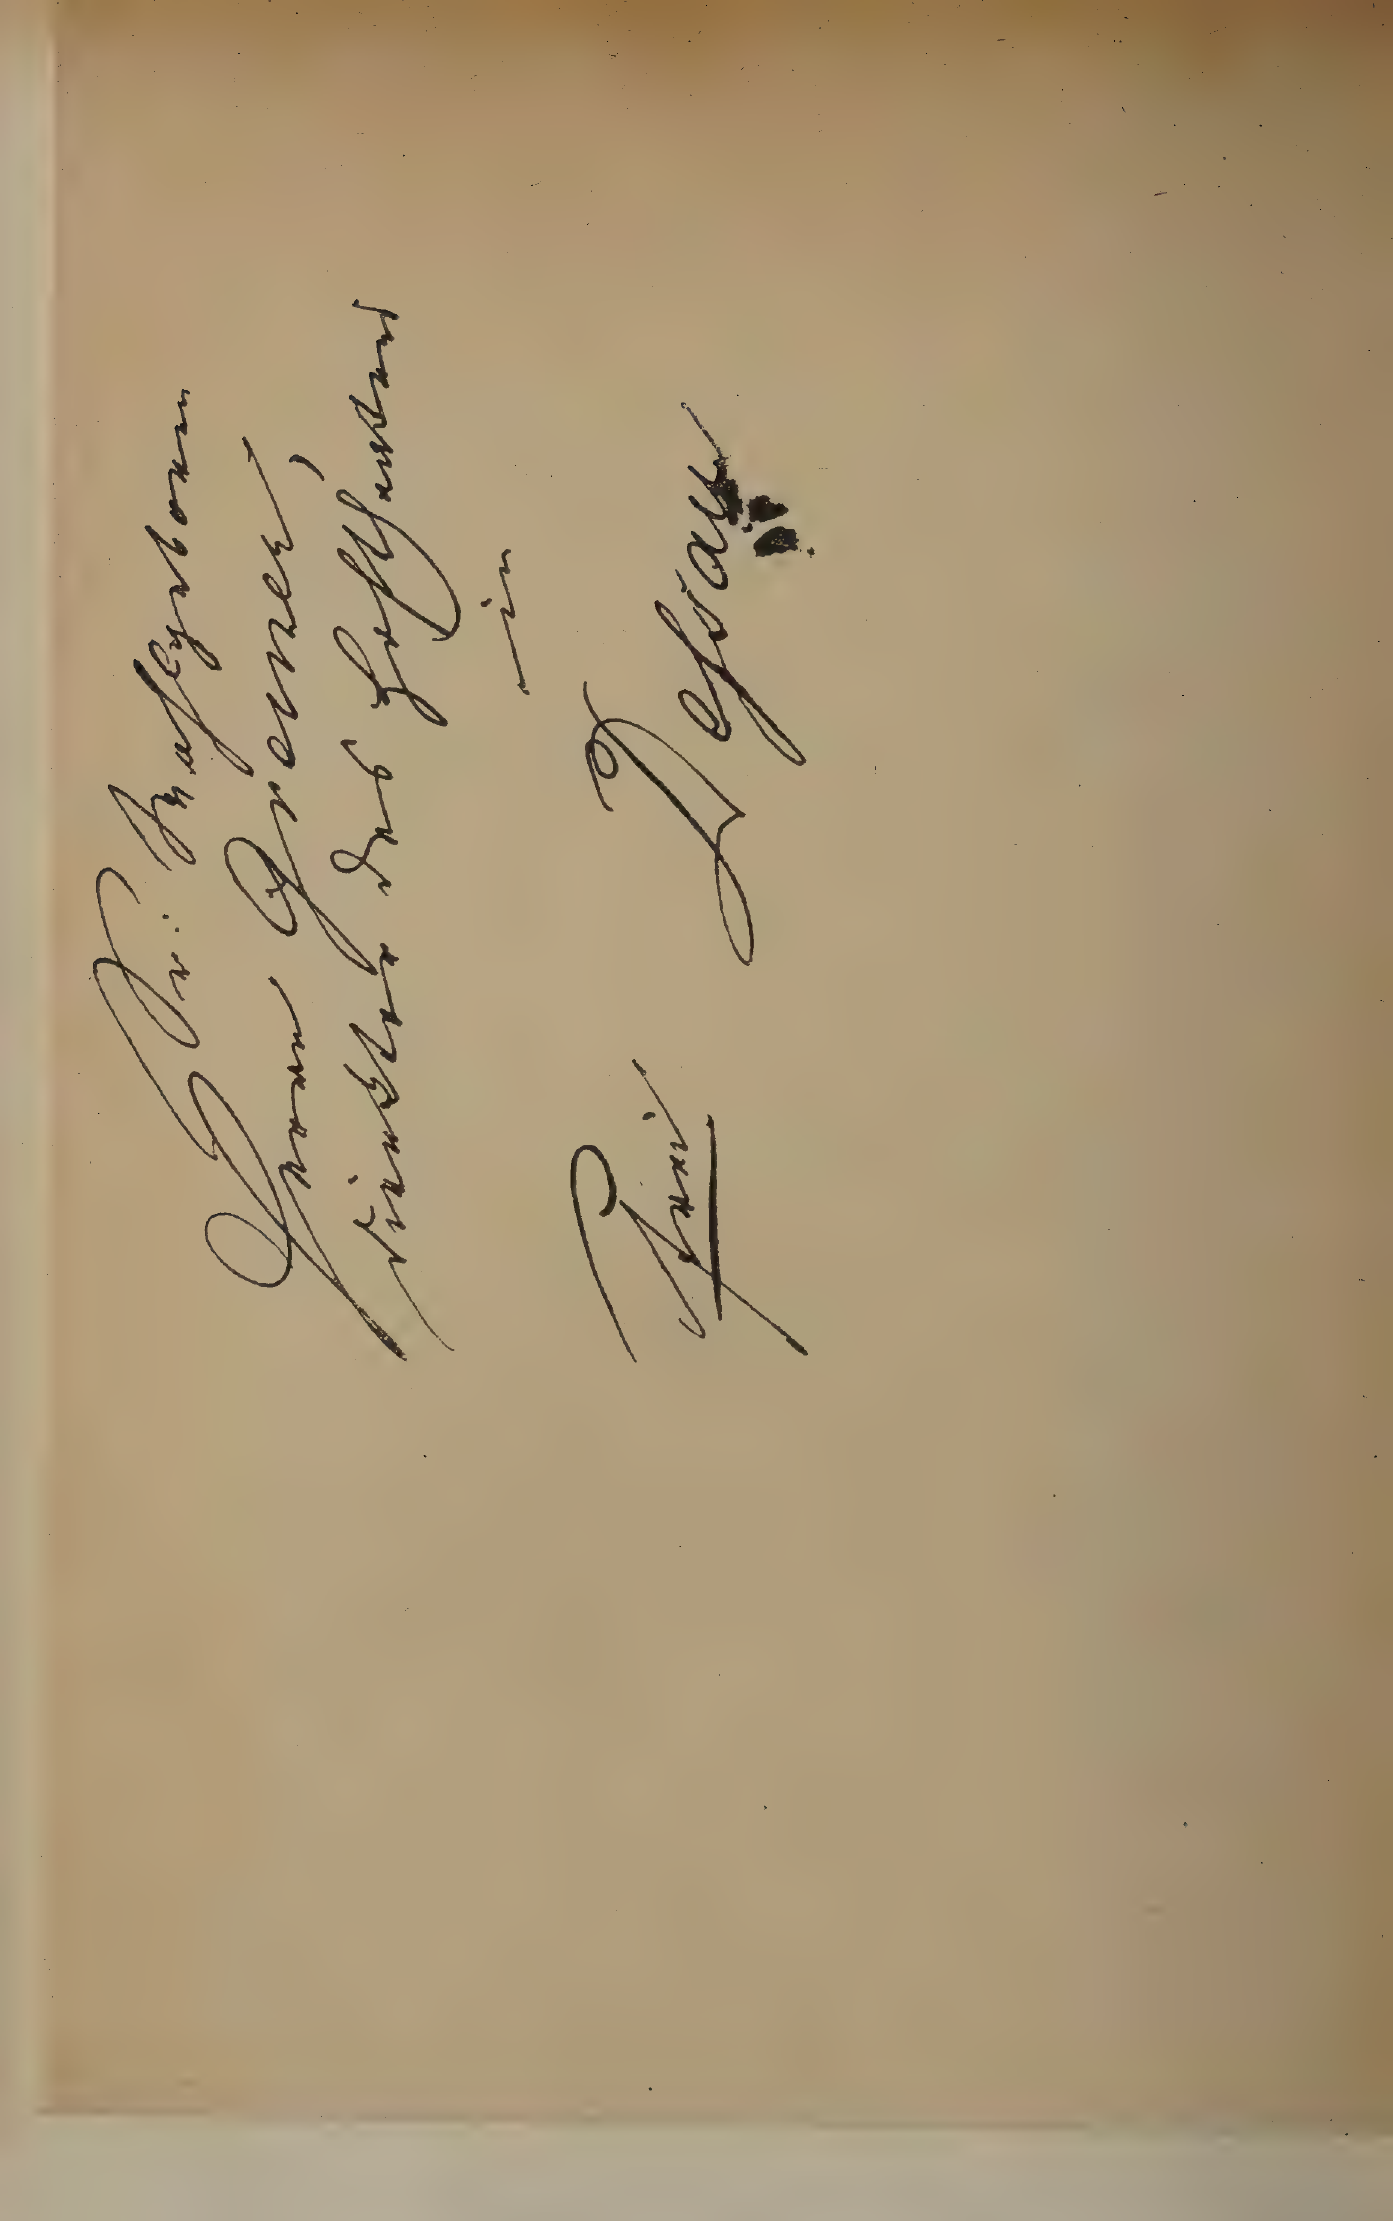 Sr: Wohlgeboren
Herrn Graener,
Direktor des Hoftheaters
in
Frei Dessau